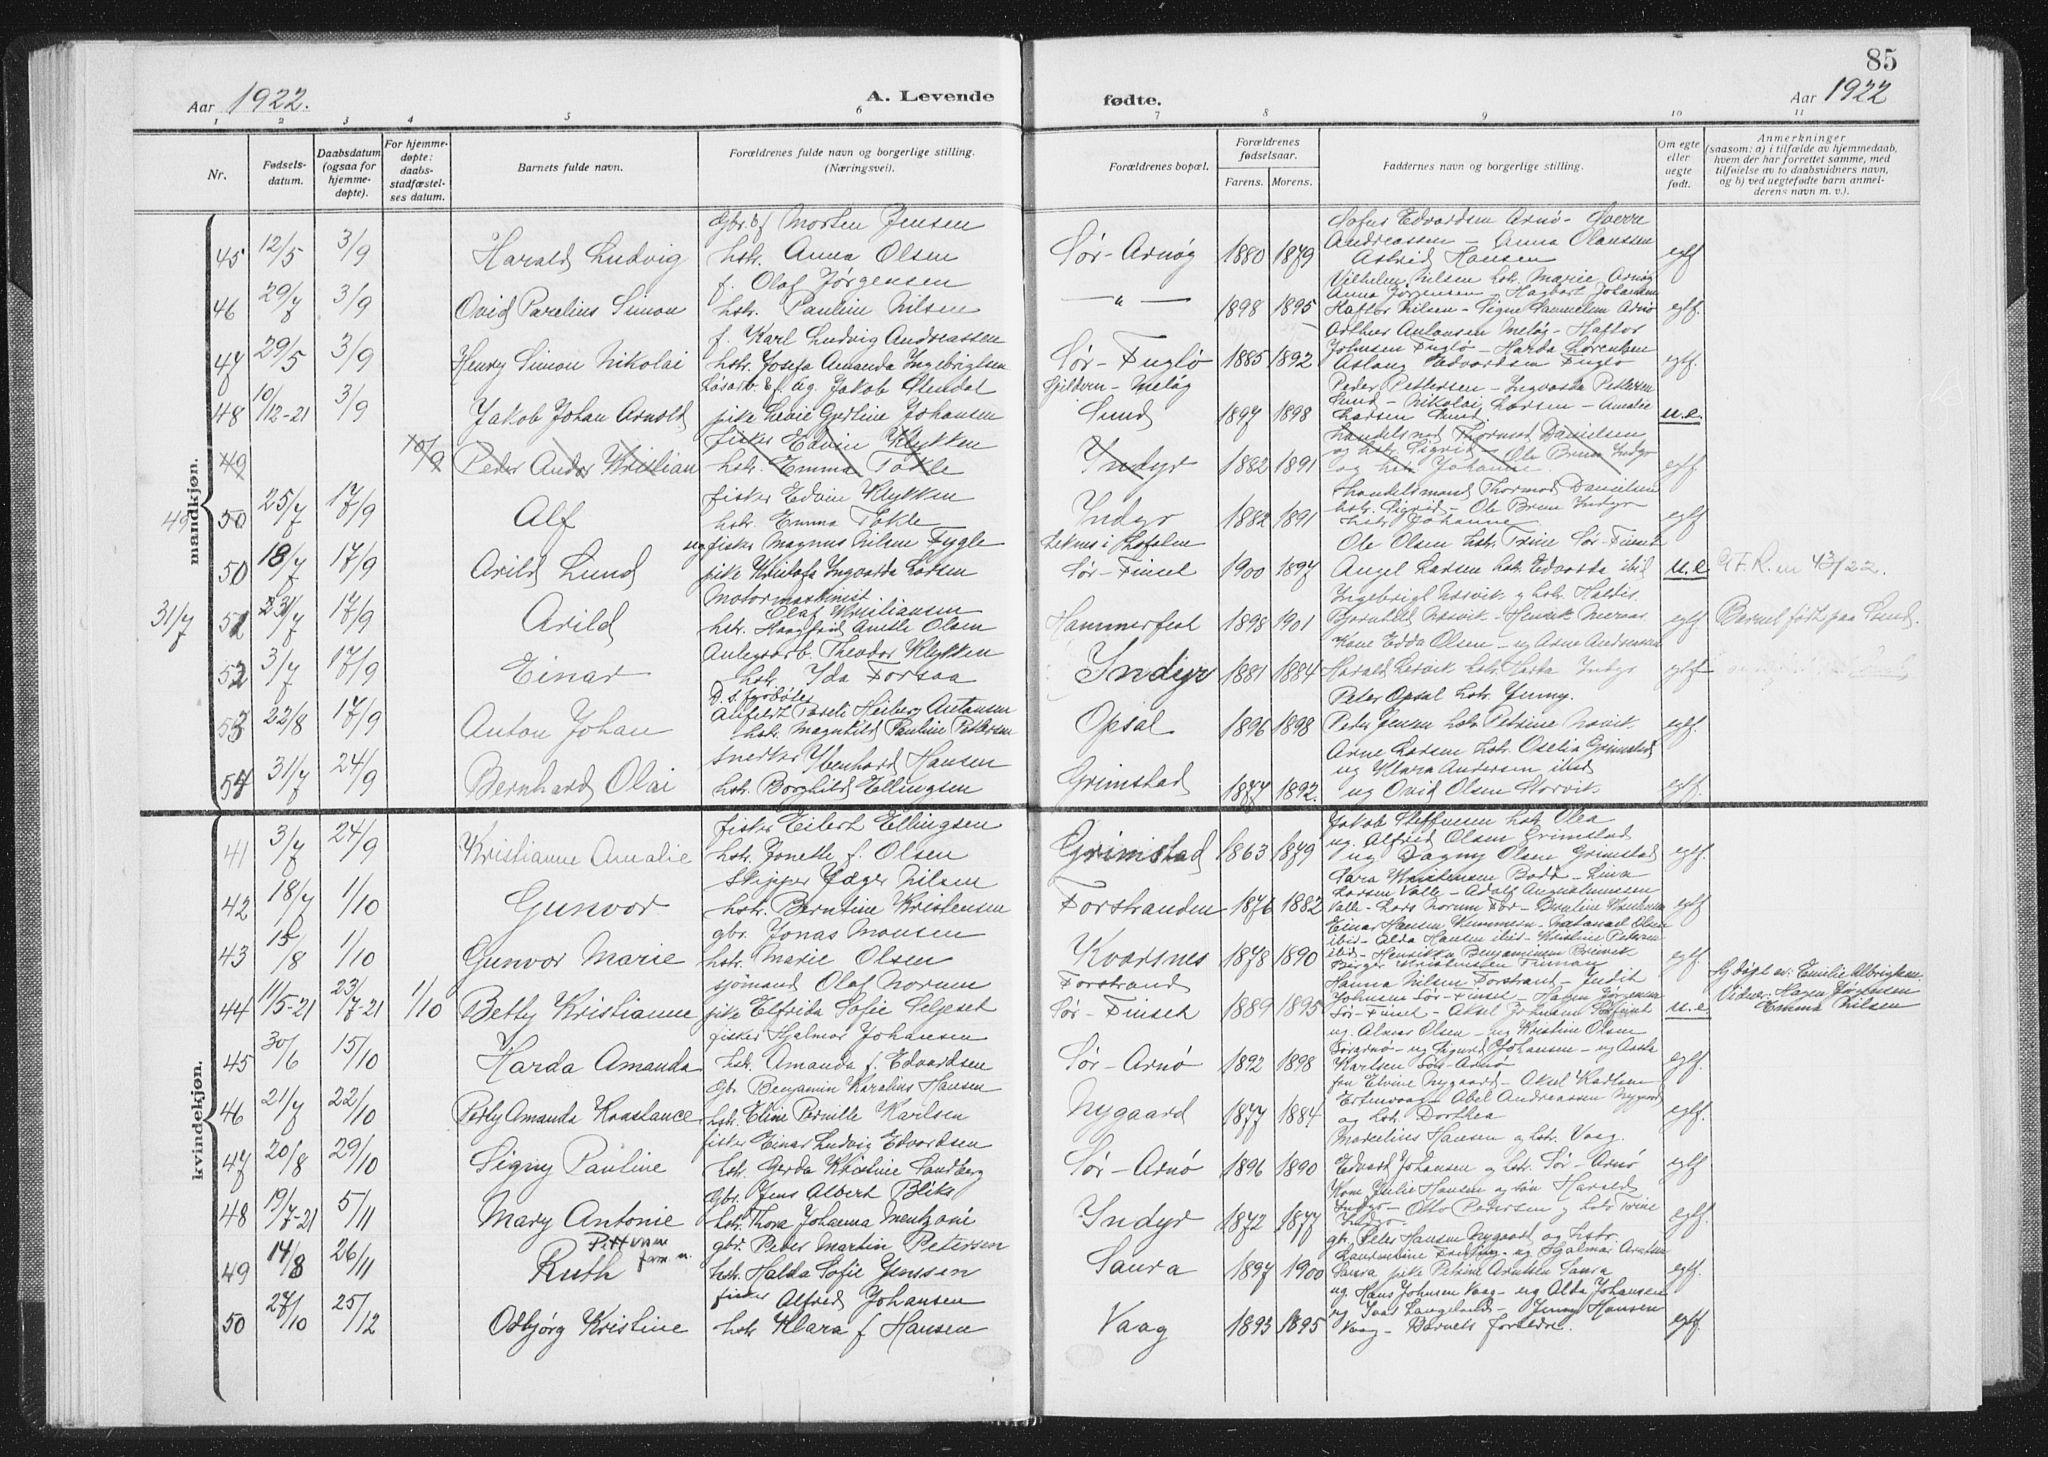 85
Aar 1922. A. Levende fødte. Aar 1922
1 2 3 4 5 6 7 8 9 10 11
Nr.
Fødsels-
datum.
Daabsdatum
(ogsaa for
hjemme-
døpte).
For hjemme-
døpte:
daabs-
stadfæstel-
ses datum.
Barnets fulde navn.
Forældrenes fulde navn og borgerlige stilling.
(Næringsvei).
Forældrenes bopæl.
Forældrenes
fødselsaar.
Farens. Morens.
Faddernes navn og borgerlige stilling.
Om egte
eller
uegte
født.
Anmerkninger
(saasom: a) i tilfælde av hjemmedaab,
hvem der har forrettet samme, med
tilføielse av to daabsvidners navn,
og b) ved uegtefødte barn anmel-
derens navn m. v.).
mandkjøn.
45 12/5 3/9 Harald Ludvig
Gbr. Morten Jensen
hstr. Anna Olsen
Sør-Arnøy 1880 1879
Sofus Edvardsen Arnø - Sverre
Andreassen - Anna Olaussen
Astrid Hansen
egtf
46 29/7 3/9 Ovid Parelius Simon
f. Olaf Jørgensen
hstr. Pauline Nilsen
— " — 1898 1895
Vilhelm Nilsen hstr. Marie Arnøy
Anna Jørgensen - Hagbart Johansen
Haftor Nilsen - Signe Samuelsen Arnø
egtf.
47 29/5 3/9 Henry Simon Nikolai
f. Karl Ludvig Andreassen
hstr. Josefa Amanda Ingebrigtsen
Sør-Fuglø 1885 1892
Meløy - Haftor
Johnsen Fuglø - Harda Lorentzen
Aslaug Edvardsen Fuglø
egtf.
48 10/12-21 3/9 Jakob Johan Arnold
Løsarb. & f. ug. Jakob Stendal
pike Levie Gjertine Johansen
Gjeldvm - Meløy
Sund 1897 1898
Peder Pettersen - Ingvarda Pettersen
Sund - Nikolai Larsen - Amalie
Larsen Sund
u.e.
49 10/9 Peder Andor Kristian
fisker Edvin Klykken
hstr. Emma Tokle
Indyr 1882 1891
Handelsmd Thormod Danielsen
og hstr Sigrid - Ole Bruun Indyr
og hstr Johanne
egtf
49 50 25/7 17/9 Alf
fisker Edvin Klykken
hstr. Emma Tokle
Indyr 1882 1891
Handelsmand Thormod Danielsen
hstr. Sigrid - Ole Bruun Indyr
hstr Johanne
egtf
50 18/7 17/9 Arild Lund
ugfisker Magnus Nilsen Fygle
pike Kristofa Ingvarda Larsen
Leknes i Lofoten
Sør-Finset 1900 1897
Ole Olsen hstr. Trine Sør-Finset
Angel Larsen hstr. Edvarda ibid
u.e G.F.R. nr 43/22.
31/7 51 23/7 17/9 Arild
Motormaskinist
Olaf Kristiansen
hstr. Haagfrid Anette Olsen
Hammerfest 1898 1901
Ingebrigt Næsvik og hstr. Haldis
Bjornhild Næsvik - Henrik
egtf. Barnet født paa Sund.
52 3/7 17/9 Einar
Anlegsarb. Theodor Klykken
hstr. Ida Forsaa
Indyr 1881 1884
Kone Edda Olsen - ug Arne Andreassen
Harald Lervik hstr Herta Indyr
egtf
53 22/8 17/9 Anton Johan
D.S. fyrbøter
Alifeldt Toreli Heiberg Antonsen
hstr. Magnhild Pauline Pettersen
Opsal 1896 1898
Peter Opsal hstr. Jenny.
Peder Jensen hstr. Petrine Norvik
egtf.
54 31/7 24/9 Bernhard Olai
snedker Ibenhard Hansen
hstr. Borghild Ellingsen
Grimstad 1877 1892.
Arne Larsen hstr. Oselia Grimstad
ug Klara Andersen ibid
ug Ovid Olsen Storvik
egtf.
kvindekjøn.
41 3/7 24/9 Kristianne Amalie
fisker Eilert Ellingsen
hstr. Jonette f. Olsen
Grimstad 1863 1879
Jakob Steffensen hstr Olea
ug. Alfred Olsen Grimstad
ug Dagny Olsen Grimstad
egtf.
42 18/7 1/10 Gunvor
Skipper Jæger Nilsen
hstr. Berntine Kristensen
Forstranden 1876 1882
Sara Kristensen Bodø - Lina
Larsen Valle - Adolf
Valle - Lars Norum Før - Berntine Kristensen
egtf
43 15/8 1/10 Gunvor Marie
gbr. Jonas Monsen
hstr. Marie Olsen
Kvarsnes 1878 1890
Einar Hansen - Natanael Olsen
ibid - Alda Hansen ibid - Kristine Petersen
ibid - Henrikka Benjaminsen Breivik
egtf.
44 11/5-21 23/7-21 1/10 Betsy Kristianne
sjømand Olaf Norum
pike Elfrida Sofie Selfoset
Forstrand
Sør-Finset 1889 1895
Birger Kristensen
Hanna Nilsen Forstrand - Judit
Johnsen Sør-Finset - Hagen Jørgensen
Sør-Finset - Aksel Johnsen
u.e
Hj døpt av: Emilie Albrigtsen
Vidner: Hagen Jørgensen
Emma Nilsen
45 30/6 15/10 Harda Amanda
fisker Hjalmar Johansen
hstr. Amanda f. Edvardsen
Sør-Arnø 1892 1898
ug. Almar Olsen - ug Kristine Olsen
Sørarnø - ug Sigurd Johansen - ug Aasta
Karlsen Sør-Arnø
egtf.
46 21/7 22/10 Perly Amanda Konstance
Gbr. Benjamin Karelius Hansen
hstr. Eline Pernille Karlsen
Nygaard 1877 1884
frn Elvine Nygaard - Aksel Karlsen
Ertenvaag - Abel Andreassen Nygaard
og hstr. Dorthea
egtf.
47 20/8 29/10 Signy Pauline
fisker Einar Ludvig Edvardsen
hstr. Gerda Kristine Sandberg
Sør-Arnø 1896 1890
Marcelius Hansen og hstr. Vaag.
Edvard Johansen og hstr. Sør-Arnø
egtf
48 19/7-21 5/11 Mary Antonie
Gbr. Jens Albert Blix
hstr. Thora Johanna Mentzoni
Indyr 1872 1877
Kone Julie Hansen og søn Harald
Indyr - Otto Petersen og hstr Trine
Indyr.
egtf.
49 14/8 26/11 Ruth Petterson fam n.
gbr. Peder Martin Petersen
hstr. Halda Sofie Jenssen
Saura 1897 1900
gbr. Peter Hansen Nygaard og hstr.
Laurentine - ug Hjalmar Arntsen
Saura pike Petrine Arntsen Saura
egtf.
50 27/10 25/12 Odbjørg Kristine
fisker Alfred Johansen
hstr. Klara f Hansen
Vaag 1893 1895
ug. Hans Johnsen Vaag - ug Alda Johansen
ug Isak Langeland - Jenny Hansen
Vaag - Barnets forældre.
egtf.